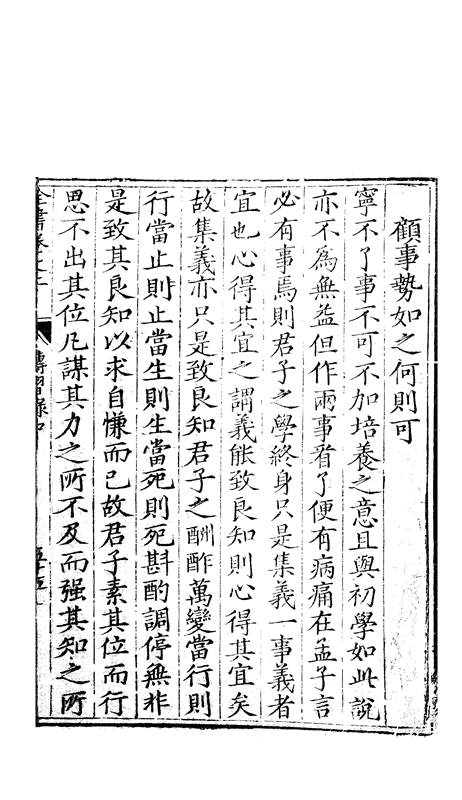 顧事勢如之何則可
寧不了事不可不加培養之意且與初學如此說
亦不為無益但作兩事看了便有病痛在孟子言
必有事焉則君子之學終身只是集義一事義者
宜也心得其宜之謂義能致良知則心得其宜矣
故集義亦只是致良知君子之酬酢萬變當行則
行當止則止當生則生當死則死斟酌調停無非
是致其良知以求自慊而已故君子素其位而行
思不出其位凡謀其力之所不及而强其知之所
全書卷之二 傳習錄中 五十五